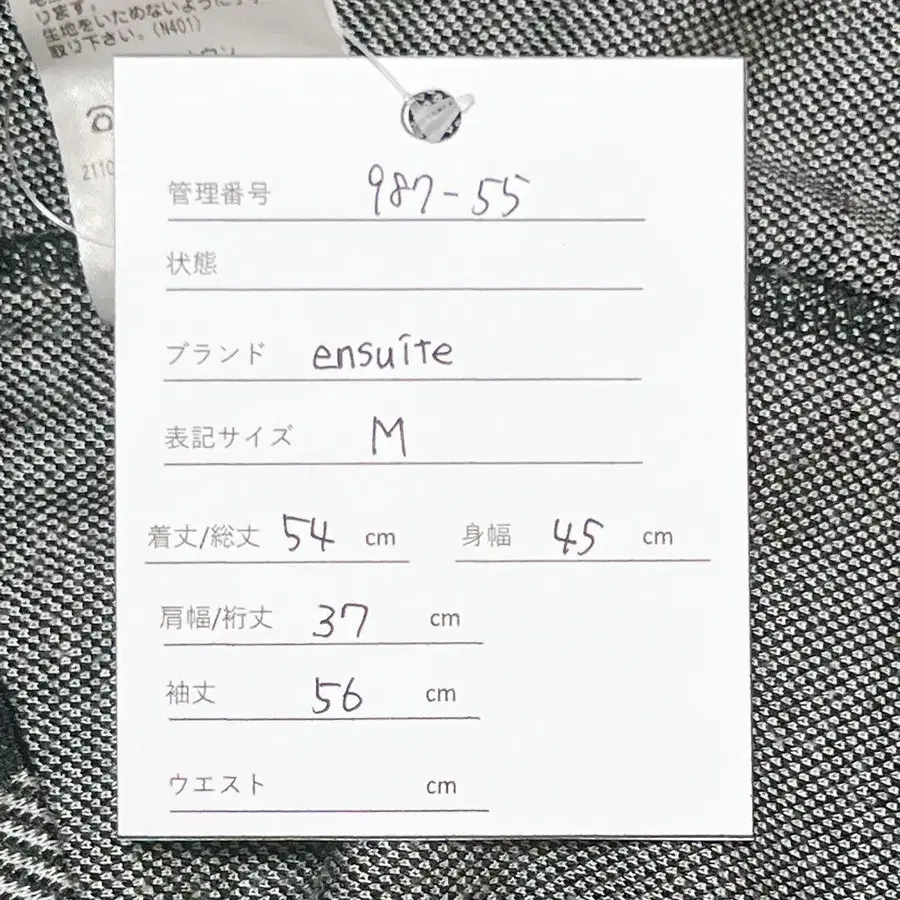 ります。
生地をいためないように
取り下さい。(N401)
2110
管理番号 987-55
状態
ブランド ensuite
表記サイズ M
着丈/総丈 54 cm 身幅 45 cm
肩幅/裄丈 37 cm
袖丈 56 cm
ウエスト cm